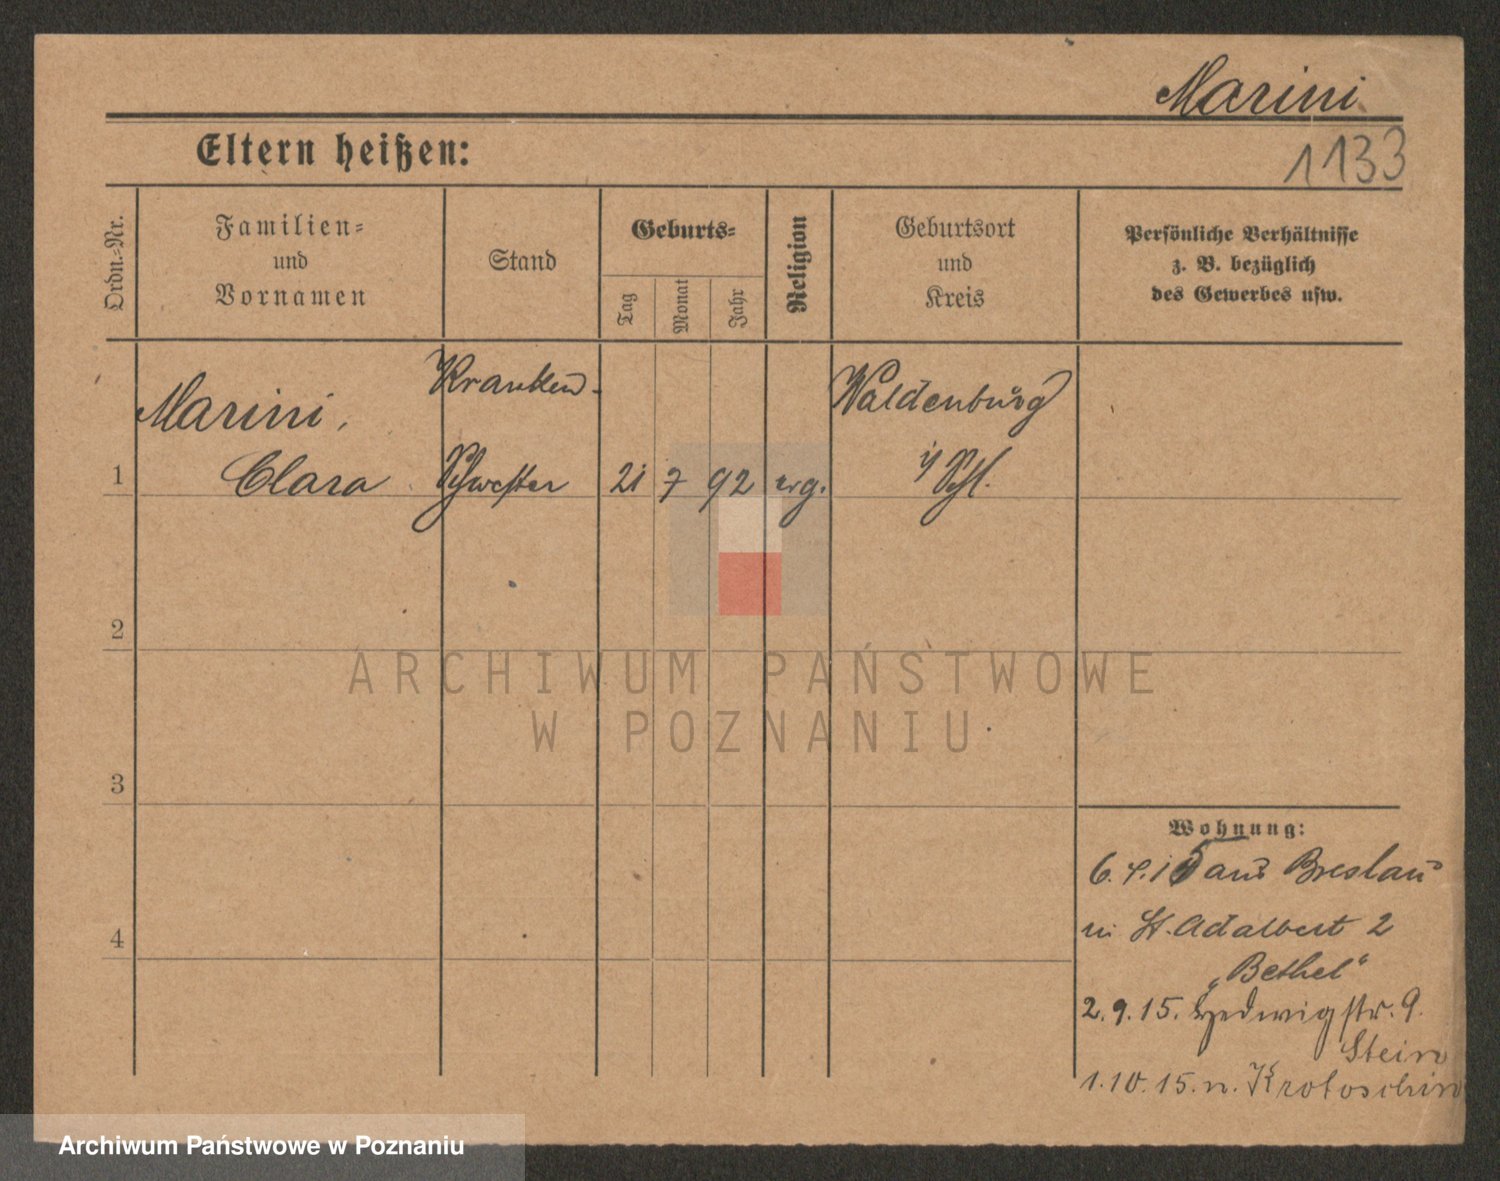 Marini
1133
Eltern heißen:
Ordn.-Nr.
Familien-
und
Vornamen
Stand
Geburts-
Tag
Monat
Jahr
Religion
Geburtsort
und
Kreis
Persönliche Verhältnisse
z. B. bezüglich
des Gewerbes usw.
Marini,
Kranken-
Waldenburg
1 Clara Schwester 21 7 92 evg. i/Schl.
2
3
4
ARCHIWUM PAŃSTWOWE
W POZNANIU
Wohnung:
6. 4. 15 aus Breslau
n. St. Adalbert 2
„Bethel“
2. 9. 15. Hedwigstr. 9.
Stein
1. 10. 15. n. Krotoschin
Archiwum Państwowe w Poznaniu